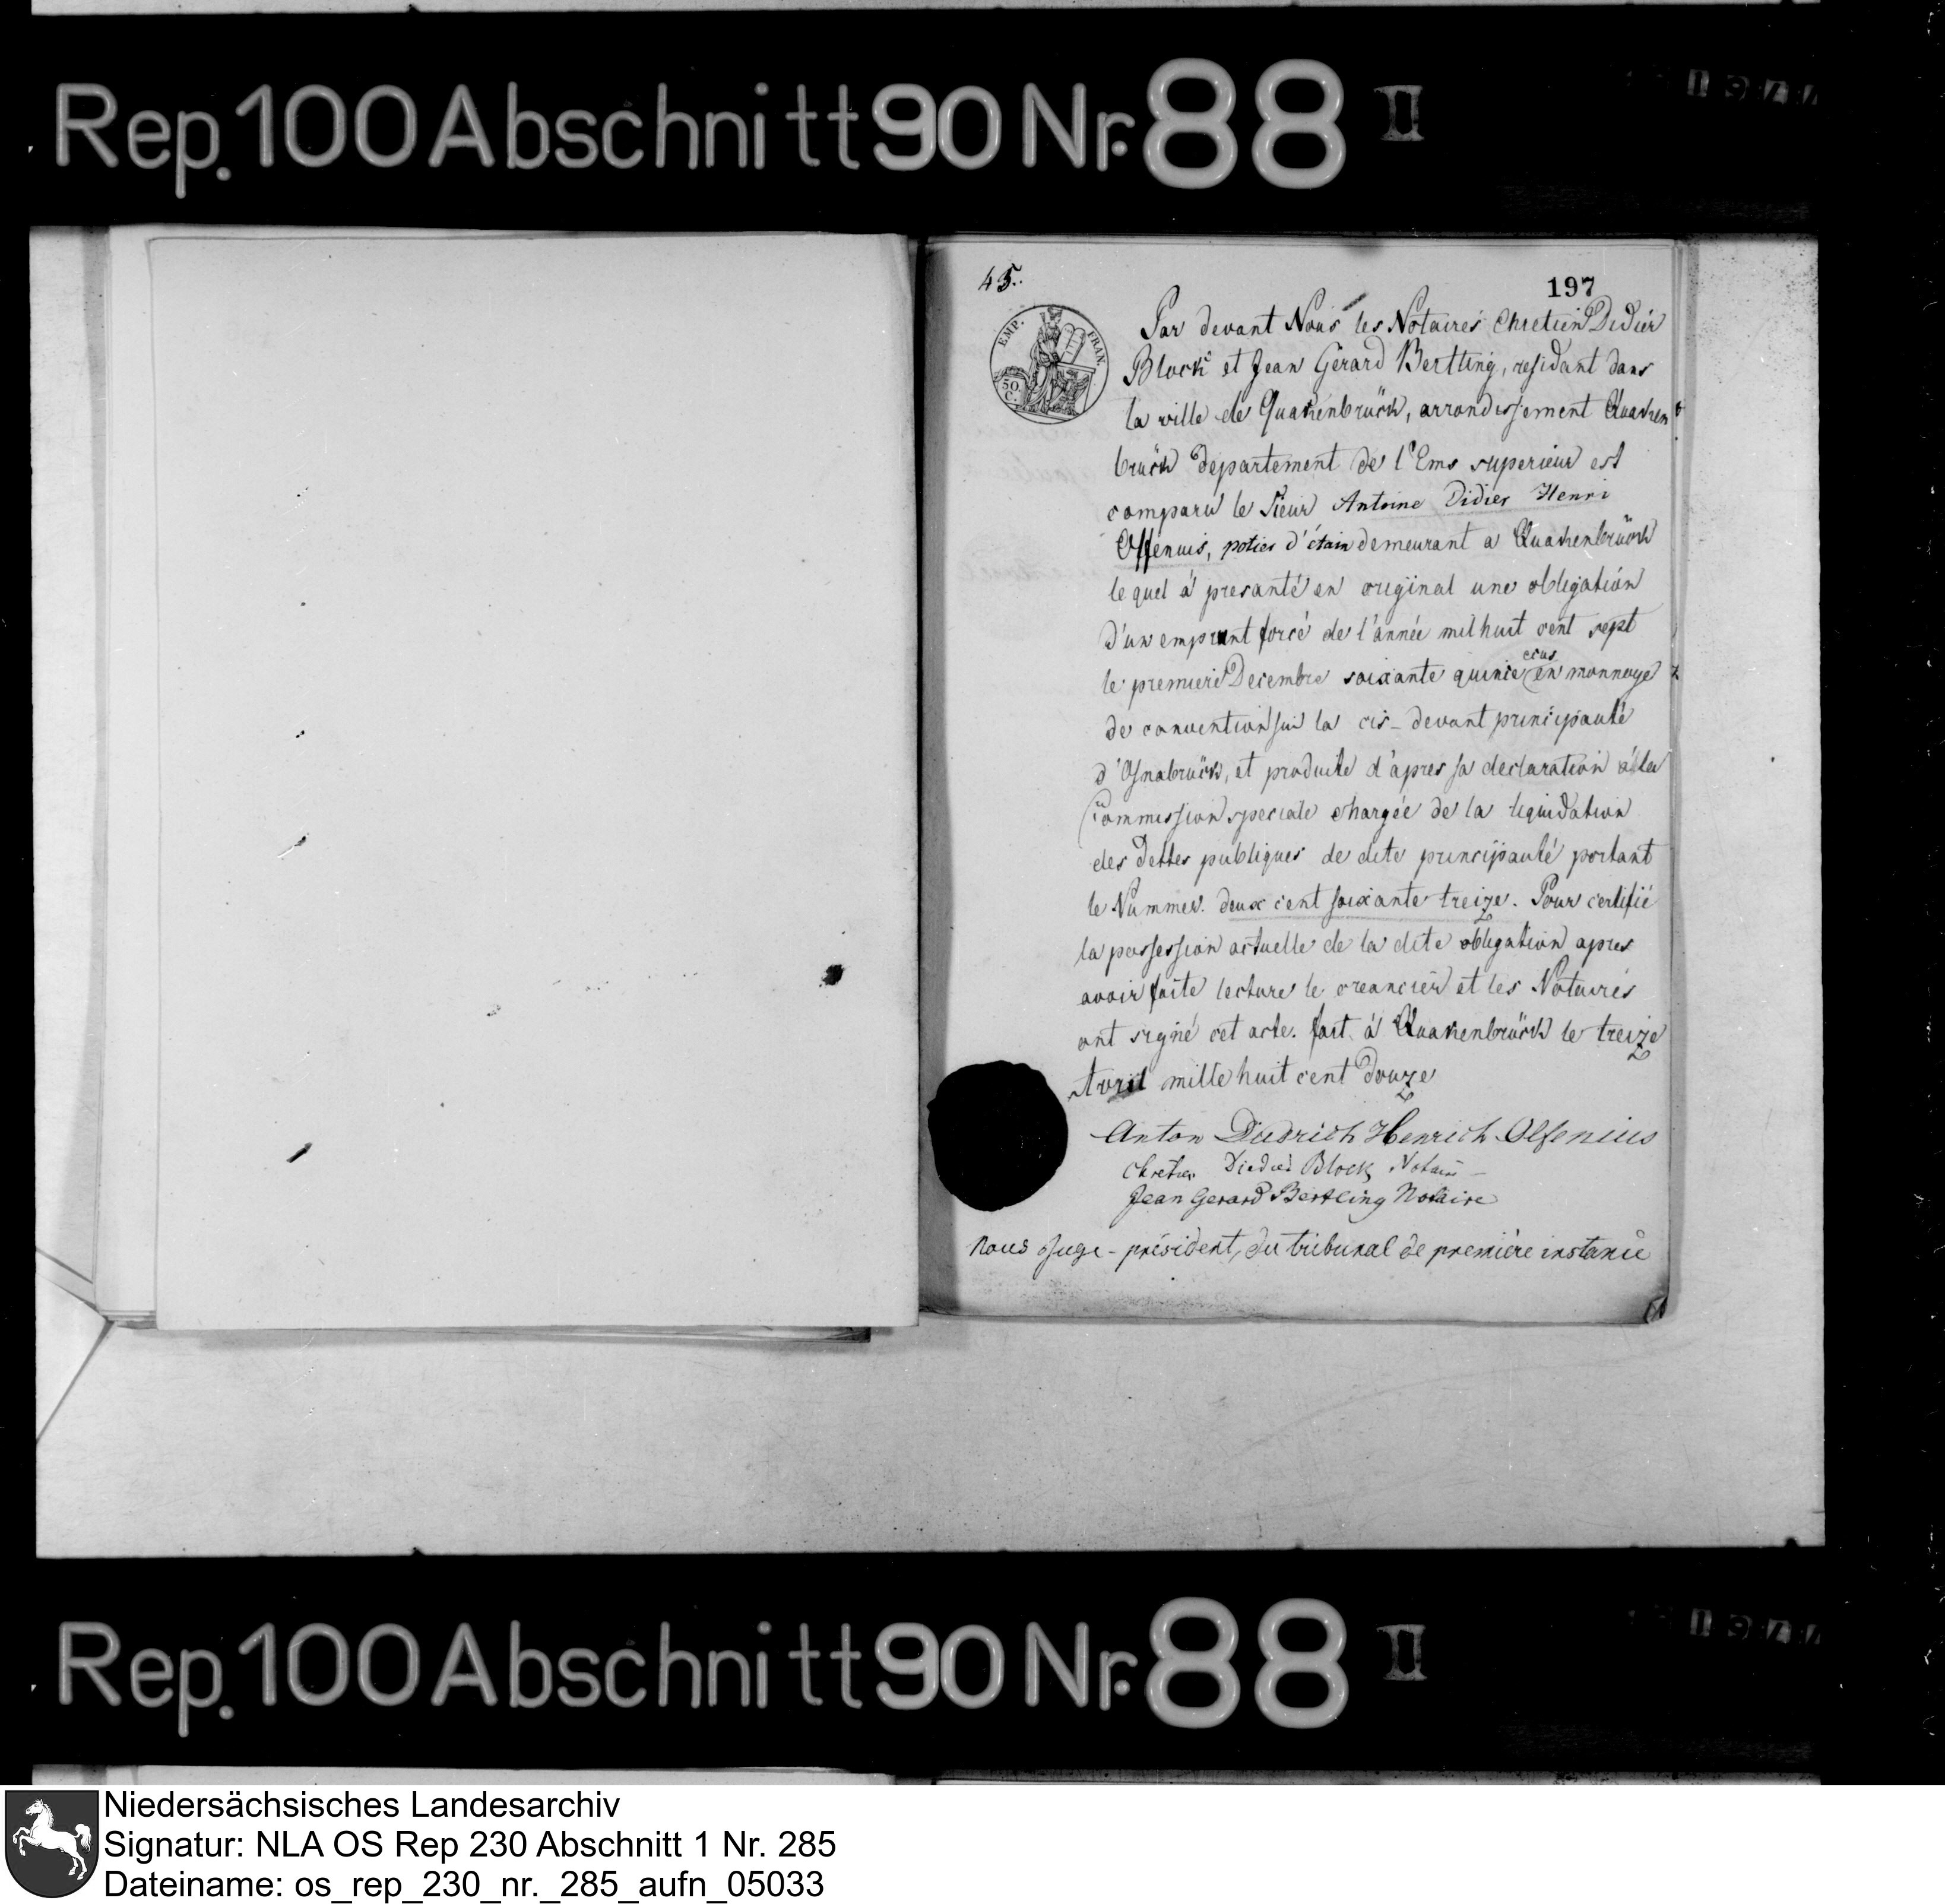 Rep. 100 Abschnitt 90 Nr. 88 II
45.
197
EMP. FRAN.
50 C.
Par devant Nous les Notaires Chretien Didier
Block et Jean Gerard Bertling, residant dans
la ville de Quakenbrück, arrondissement Quaken
brück departement de l'Ems superieur est
comparu le Sieur Antoine Didier Henri
Olfenius, potier d'étain demeurant a Quakenbrück
le quel á presanté en original une obligation
d'un emprunt forcé de l'année mil huit cent sept
le premiere Decembre soixante quince ecus en monnoye
de convention sur la cis-devant principauté
d'Osnabrück, et produite d'apres sa declaration á la
Commission speciale chargée de la liquidation
des dettes publiques de dite principauté portant
le Nummer. deux cent soixante treize. Pour certifié
la possession actuelle de la dite obligation apres
avoir faite lecture le creancier et les Notaires
ont signé cet acte. fait á Quakenbrück le treize
Avril mille huit cent douze
Anton Diedrich Henrich Olfenius
Chretien Diedrich Block Notaire
Jean Gerard Bertling Notaire
Nous Juge-président, du tribunal de première instance
Rep. 100 Abschnitt 90 Nr. 88 II
Niedersächsisches Landesarchiv
Signatur: NLA OS Rep 230 Abschnitt 1 Nr. 285
Dateiname: os_rep_230_nr._285_aufn_05033